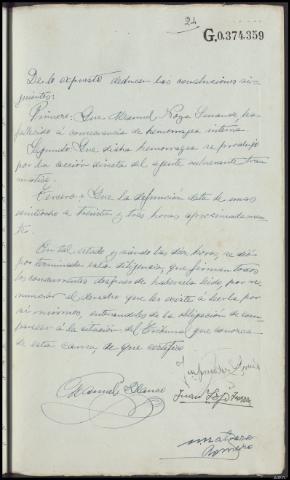 24
G.0.374.359
De lo expuesto deducen las conclusiones si-
guientes:
Primera: Que Manuel Noya Senande ha
fallecido a consecuencia de hemorragia interna.
Segundo Que dicha hemorragia se produjo
por la acción directa del agente vulnerante trau-
matico.
Tercero: Que la defunción data de unas
veintiocho a treinta y tres horas aproximadamen-
te.
En tal estado y siendo las diez horas, se dió
por terminada esta diligencia, que firman todos
los concurrentes despues de haberla leido, por re-
nunciar al derecho que les asiste a leerla por
si mismos, enterandoles de la obligación de com-
parecer a la citación del Tribunal que conozca
de esta causa, de que certifico
Manuel
Juan